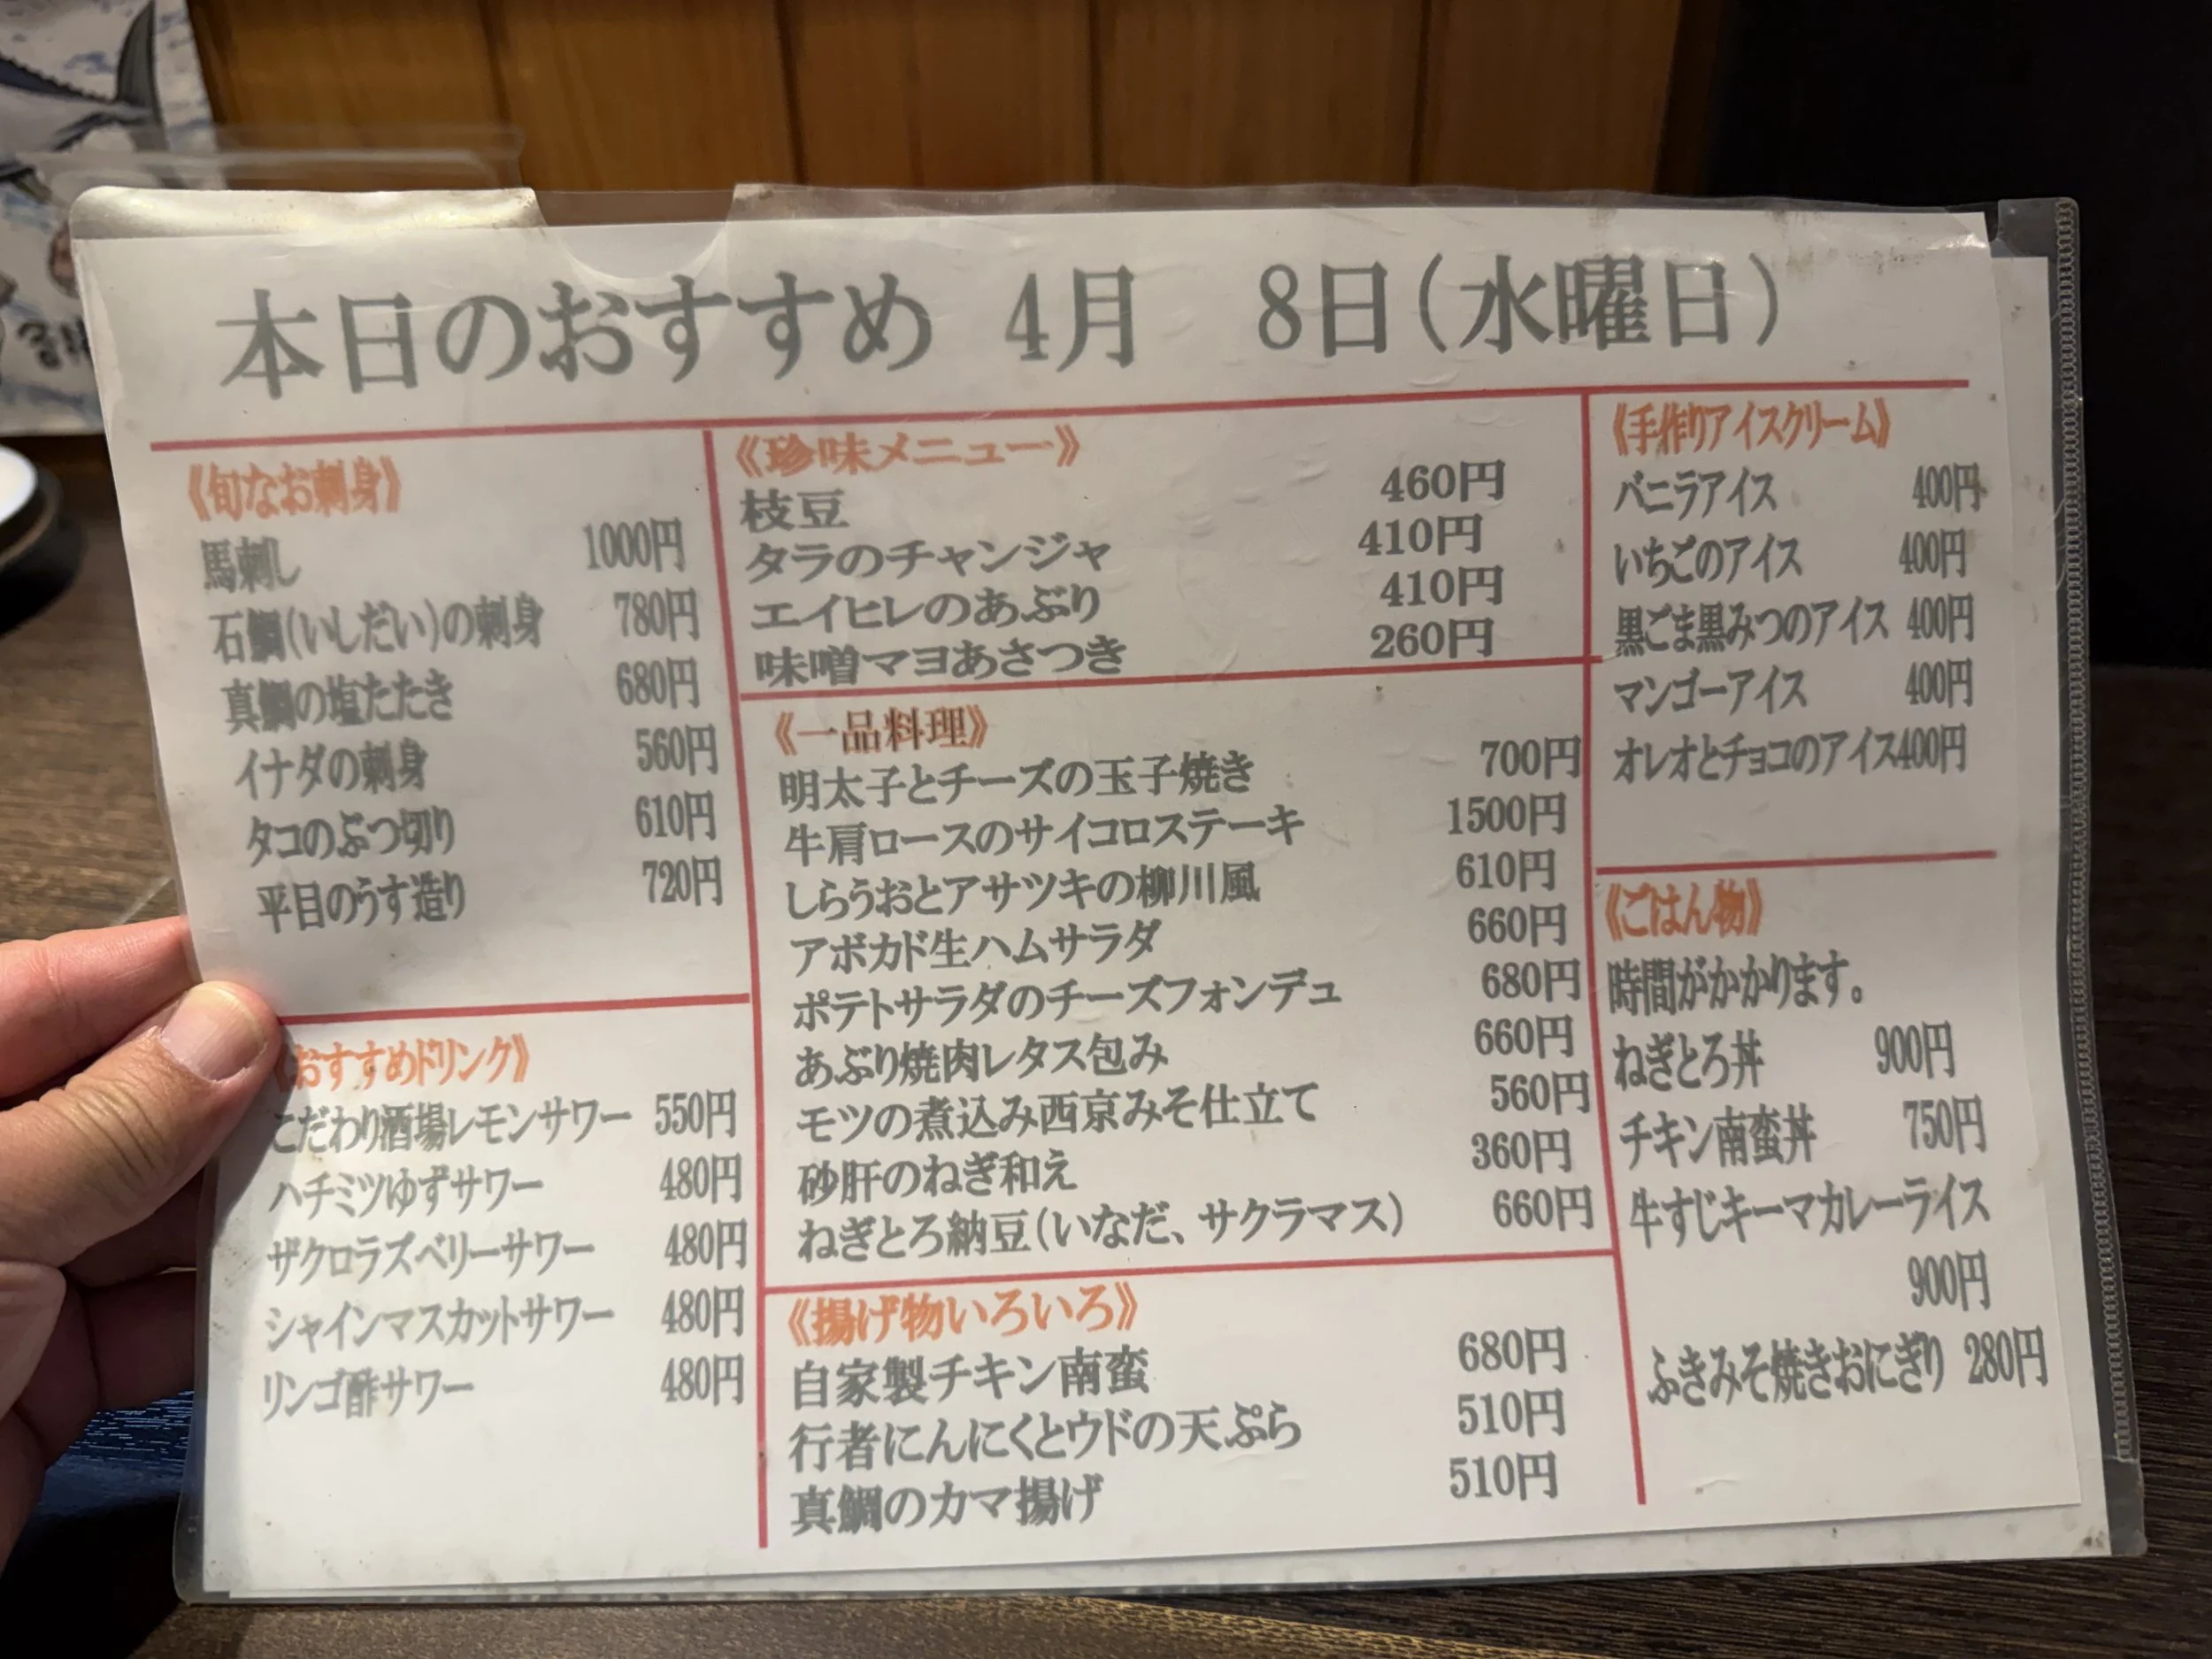 本日のおすすめ 4月 8日(水曜日)
《旬なお刺身》
馬刺し 1000円
石鯛(いしだい)の刺身 780円
真鯛の塩たたき 680円
イナダの刺身 560円
タコのぶつ切り 610円
平目のうす造り 720円
おすすめドリンク》
こだわり酒場レモンサワー 550円
ハチミツゆずサワー 480円
ザクロラズベリーサワー 480円
シャインマスカットサワー 480円
リンゴ酢サワー 480円
《珍味メニュー》
枝豆 460円
タラのチャンジャ 410円
エイヒレのあぶり 410円
味噌マヨあさつき 260円
《一品料理》
明太子とチーズの玉子焼き 700円
牛肩ロースのサイコロステーキ 1500円
しらうおとアサツキの柳川風 610円
アボカド生ハムサラダ 660円
ポテトサラダのチーズフォンデュ 680円
あぶり焼肉レタス包み 660円
モツの煮込み西京みそ仕立て 560円
砂肝のねぎ和え 360円
ねぎとろ納豆(いなだ、サクラマス) 660円
《揚げ物いろいろ》
自家製チキン南蛮 680円
行者にんにくとウドの天ぷら 510円
真鯛のカマ揚げ 510円
《手作りアイスクリーム》
バニラアイス 400円
いちごのアイス 400円
黒ごま黒みつのアイス 400円
マンゴーアイス 400円
オレオとチョコのアイス400円
《ごはん物》
時間がかかります。
ねぎとろ丼 900円
チキン南蛮丼 750円
牛すじキーマカレーライス
900円
ふきみそ焼きおにぎり 280円